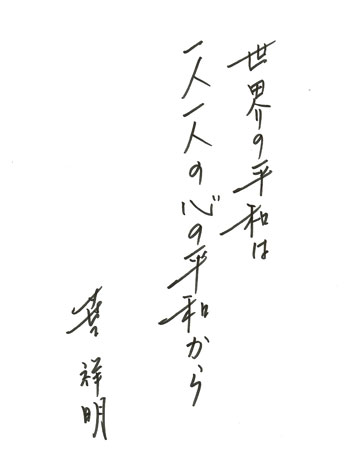 世界の平和は
一人一人の心の平和から
喜祥明